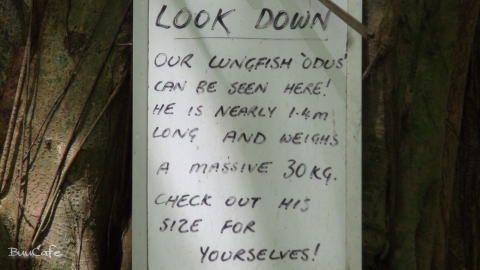 LOOK DOWN
OUR LUNGFISH 'ODUS'
CAN BE SEEN HERE!
HE IS NEARLY 1.4m
LONG AND WEIGHS
A MASSIVE 30KG.
CHECK OUT HIS
SIZE FOR
YOURSELVES!
BuuCafe